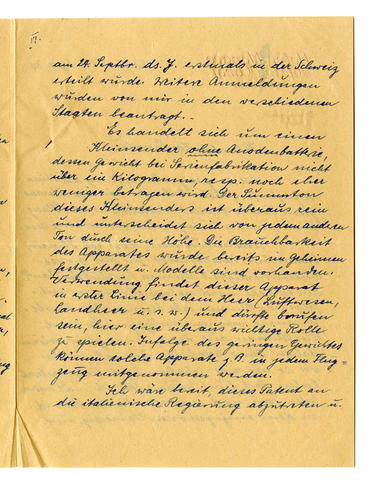 IV.
am 24. Septbr. ds. J. erstmals in der Schweiz
erteilt wurde. Weitere Anmeldungen
wurden von mir in den verschiedenen
Staaten beantragt.
Es handelt sich um einen
Kleinsender ohne Anodenbattrie,
dessen Gewicht bei Serienfabrikation nicht
über ein Kilogramm, resp. noch eher
weniger betragen wird. Der Summton
dieses Kleinsenders ist überaus rein
und unterscheidet sich von jedem andern
Ton durch seine Höhe. Die Brauchbarkeit
des Apparates wurde bereits im Geheimen
festgestellt u. Modelle sind vorhanden.
Verwendung findet dieser Apparat
in erster Linie bei dem Heer (Luftwesen,
Landheer u. s. w.) und dürfte berufen
sein, hier eine überaus wichtige Rolle
zu spielen. Infolge des geringen Gewichtes
können solche Apparate z. B. in jedem Flug-
zeug mitgenommen werden.
Ich wäre bereit, dieses Patent an
die italienische Regierung abzutreten u.